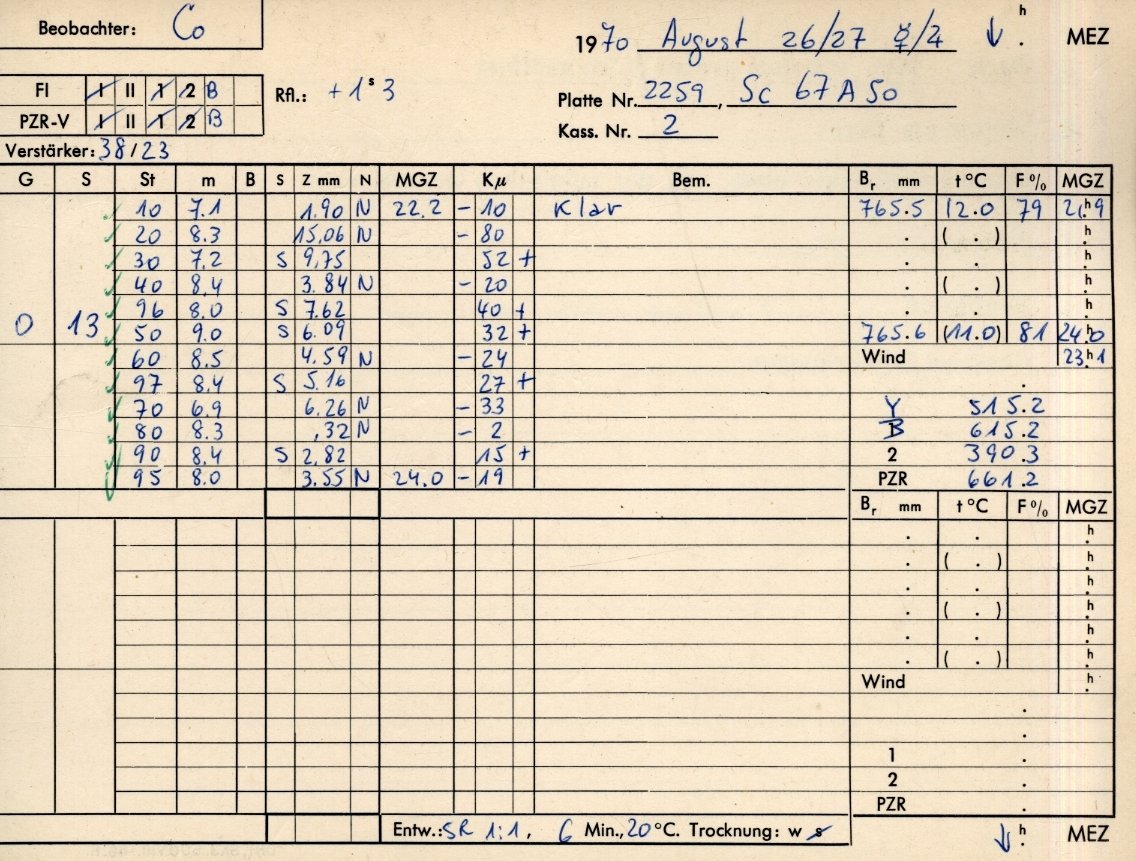 Beobachter: Co
1970 August 26/27 ☿/♃ ↓ h . MEZ
FI I II 1 2 B Rfl.: +1ˢ3
Platte Nr. 2259, Sc 67A50
PZR-V I II 1 2 B
Kass. Nr. 2
Verstärker: 38/23
G S St m B S Z mm N MGZ Kμ Bem. Br mm t°C F% MGZ
10 7.1 1.90 N 22.2 -10 Klar 765.5 12.0 79 21h9
20 8.3 15.06 N -80 . ( . ) h.
30 7.2 S 9.75 52+ . . h.
40 8.4 3.84 N -20 . ( . ) h.
96 8.0 S 7.62 40+ . . h.
0 13 50 9.0 S 6.09 32+ 765.6 (11.0) 81 24h0
60 8.5 4.59 N -24 Wind 23h1
97 8.4 S 5.16 27+ .
70 6.9 6.26 N -33 Y 515.2
80 8.3 ,32 N -2 B 615.2
90 8.4 S 2.82 15+ 2 390.3
95 8.0 3.55 N 24.0 -19 PZR 661.2
Br mm t°C F% MGZ
. . h.
. ( . ) h.
. . h.
. ( . ) h.
. . h.
. ( . ) h.
Wind h.
.
.
1 .
2 .
PZR .
Entw.: SR 1:1, 6 Min., 20°C. Trocknung: w s ↓ h . MEZ